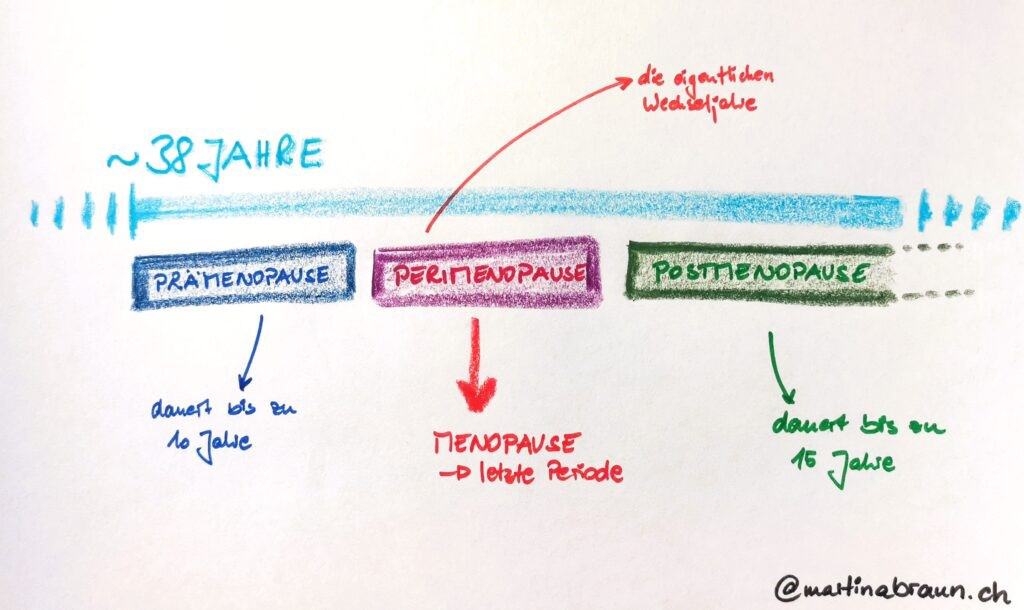 die eigentlichen
Wechseljahre
~38 JAHRE
PRÄMENOPAUSE
PERIMENOPAUSE
POSTMENOPAUSE
dauert bis zu
10 Jahre
MENOPAUSE
→ letzte Periode
dauert bis zu
15 Jahre
@martinabraun.ch